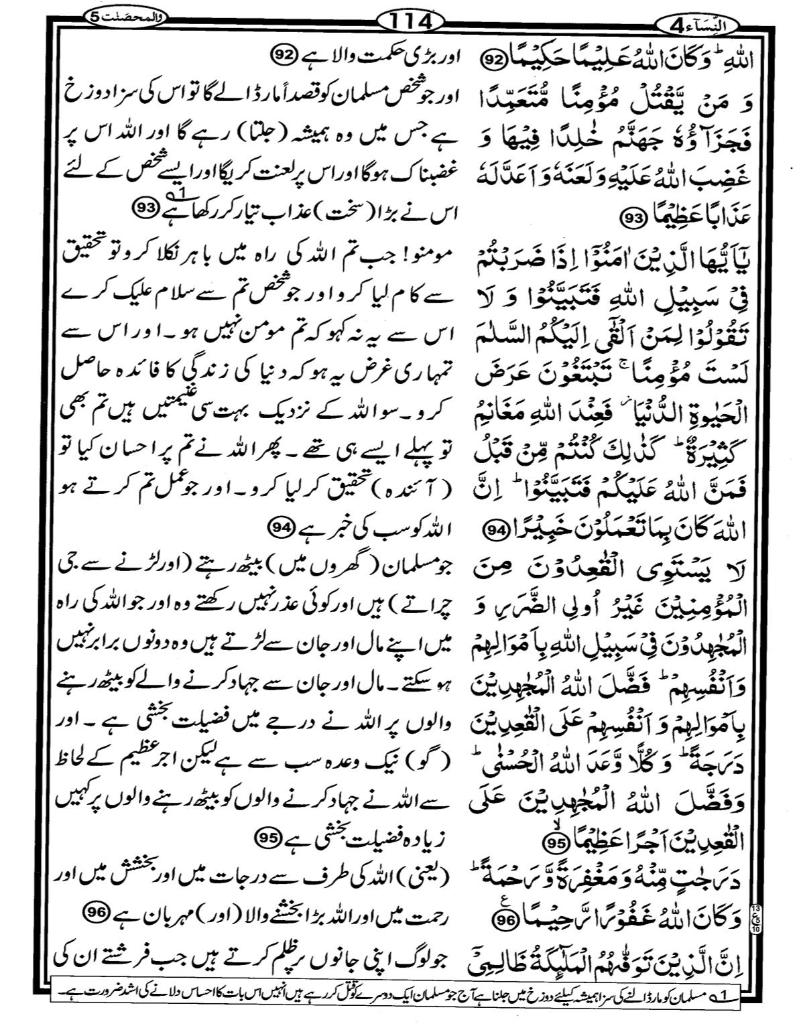 النِّسَآء 4
114
وَالْمُحْصَنٰت 5
اللّٰهِ ؕ وَكَانَ اللّٰهُ عَلِيْمًا حَكِيْمًا 92
وَ مَنْ يَّقْتُلْ مُؤْمِنًا مُّتَعَمِّدًا
فَجَزَآؤُهٗ جَهَنَّمُ خٰلِدًا فِيْهَا وَ
غَضِبَ اللّٰهُ عَلَيْهِ وَلَعَنَهٗ وَاَعَدَّلَهٗ
عَذَابًا عَظِيْمًا 93
يٰۤاَيُّهَا الَّذِيْنَ اٰمَنُوْۤا اِذَا ضَرَبْتُمْ
فِىْ سَبِيْلِ اللّٰهِ فَتَبَيَّنُوْا وَ لَا
تَقُوْلُوْا لِمَنْ اَلْقٰۤى اِلَيْكُمُ السَّلٰمَ
لَسْتَ مُؤْمِنًا ۚ تَبْتَغُوْنَ عَرَضَ
الْحَيٰوةِ الدُّنْيَا ؗ فَعِنْدَ اللّٰهِ مَغَانِمُ
كَثِيْرَةٌ ؕ كَذٰلِكَ كُنْتُمْ مِّنْ قَبْلُ
فَمَنَّ اللّٰهُ عَلَيْكُمْ فَتَبَيَّنُوْا ؕ اِنَّ
اللّٰهَ كَانَ بِمَا تَعْمَلُوْنَ خَبِيْرًا 94
لَا يَسْتَوِى الْقٰعِدُوْنَ مِنَ
الْمُؤْمِنِيْنَ غَيْرُ اُولِى الضَّرَرِ وَ
الْمُجٰهِدُوْنَ فِىْ سَبِيْلِ اللّٰهِ بِاَمْوَالِهِمْ
وَاَنْفُسِهِمْ ؕ فَضَّلَ اللّٰهُ الْمُجٰهِدِيْنَ
بِاَمْوَالِهِمْ وَ اَنْفُسِهِمْ عَلَى الْقٰعِدِيْنَ
دَرَجَةً ؕ وَ كُلًّا وَّعَدَ اللّٰهُ الْحُسْنٰى ؕ
وَفَضَّلَ اللّٰهُ الْمُجٰهِدِيْنَ عَلَى
الْقٰعِدِيْنَ اَجْرًا عَظِيْمًا ۙ 95
دَرَجٰتٍ مِّنْهُ وَ مَغْفِرَةً وَّ رَحْمَةً ؕ
وَ كَانَ اللّٰهُ غَفُوْرًا رَّحِيْمًا ع 96
اِنَّ الَّذِيْنَ تَوَفّٰٮهُمُ الْمَلٰٓٮِٕكَةُ ظَالِمِىْۤ
اور بڑی حکمت والا ہے 92
اور جو شخص مسلمان کو قصداً مار ڈالے گا تو اس کی سزا دوزخ
ہے جس میں وہ ہمیشہ (جلتا) رہے گا اور اللہ اس پر
غضبناک ہوگا اور اس پر لعنت کریگا اور ایسے شخص کے لئے
اس نے بڑا (سخت) عذاب تیار کر رکھا ہے 1 93
مومنو! جب تم اللہ کی راہ میں باہر نکلا کرو تو تحقیق
سے کام لیا کرو اور جو شخص تم سے سلام علیک کرے
اس سے یہ نہ کہو کہ تم مومن نہیں ہو۔ اور اس سے
تمہاری غرض یہ ہو کہ دنیا کی زندگی کا فائدہ حاصل
کرو۔ سو اللہ کے نزدیک بہت سی غنیمتیں ہیں تم بھی
تو پہلے ایسے ہی تھے۔ پھر اللہ نے تم پر احسان کیا تو
(آئندہ) تحقیق کر لیا کرو۔ اور جو عمل تم کرتے ہو
اللہ کو سب کی خبر ہے 94
جو مسلمان (گھروں میں) بیٹھ رہتے (اور لڑنے سے جی
چراتے) ہیں اور کوئی عذر نہیں رکھتے وہ اور جو اللہ کی راہ
میں اپنے مال اور جان سے لڑتے ہیں وہ دونوں برابر نہیں
ہو سکتے۔ مال اور جان سے جہاد کرنے والے کو بیٹھ رہنے
والوں پر اللہ نے درجے میں فضیلت بخشی ہے۔ اور
(گو) نیک وعدہ سب سے ہے لیکن اجر عظیم کے لحاظ
سے اللہ نے جہاد کرنے والوں کو بیٹھ رہنے والوں پر کہیں
زیادہ فضیلت بخشی ہے 95
(یعنی) اللہ کی طرف سے درجات میں اور بخشش میں اور
رحمت میں اور اللہ بڑا بخشنے والا (اور) مہربان ہے 96
جو لوگ اپنی جانوں پر ظلم کرتے ہیں جب فرشتے ان کی
13
ع
10
1 مسلمان کو مار ڈالنے کی سزا ہمیشہ کیلئے دوزخ میں جلنا ہے آج جو مسلمان ایک دوسرے کو قتل کر رہے ہیں انہیں اس بات کا احساس دلانے کی اشد ضرورت ہے۔